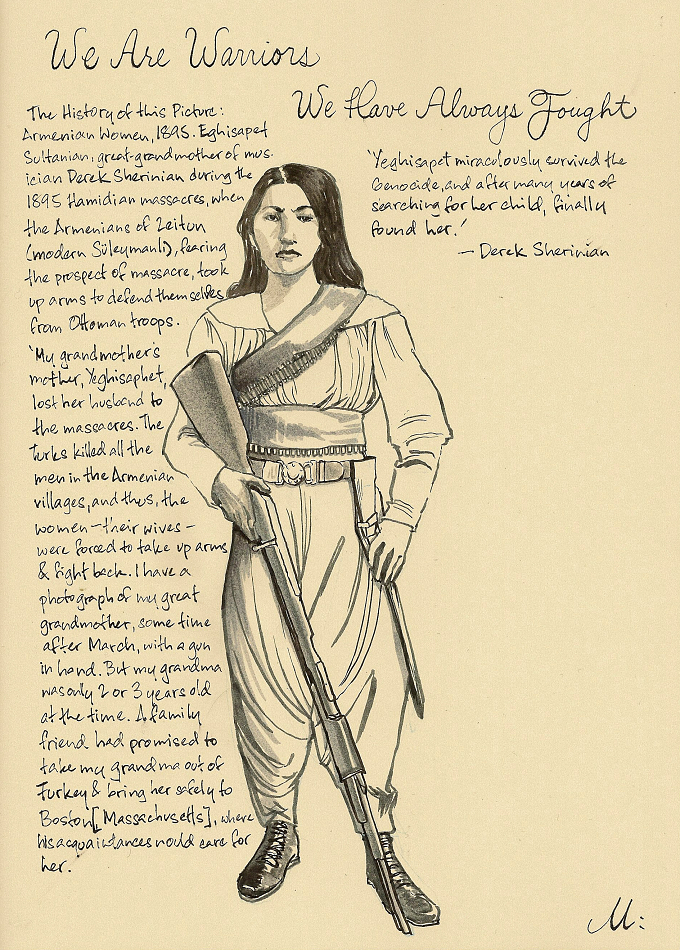 We Are Warriors
We Have Always Fought
The History of this Picture:
Armenian Women, 1895. Eghisapet
Sultanian, great-grandmother of mus-
ician Derek Sherinian during the
1895 Hamidian massacres, when
the Armenians of Zeitun
(modern Süleymanli), fearing
the prospect of massacre, took
up arms to defend themselves
from Ottoman troops.
'My grandmother's
mother, Yeghisaphet,
lost her husband to
the massacres. The
Turks killed all the
men in the Armenian
villages, and thus, the
women – their wives –
were forced to take up arms
& fight back. I have a
photograph of my great
grandmother, some time
after March, with a gun
in hand. But my grandma
was only 2 or 3 years old
at the time. A family
friend had promised to
take my grandma out of
Turkey & bring her safely to
Boston [Massachusetts], where
his acquaintances would care for
her.
'Yeghisapet miraculously survived the
Genocide, and after many years of
searching for her child, finally
found her.'
— Derek Sherinian
M: